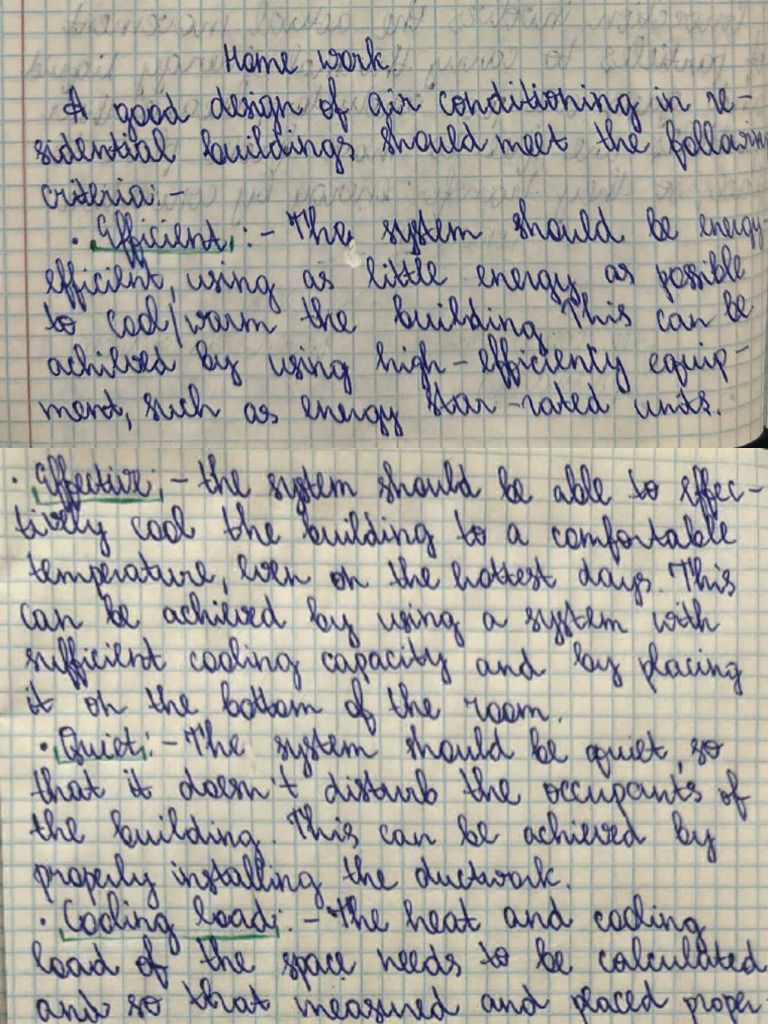 Home work.
A good design of air conditioning in re-
sidential buildings should meet the following
criteria: -
• Efficient: - The system should be energy-
efficient, using as little energy as possible
to cool/warm the building. This can be
achieved by using high-efficiency equip-
ment, such as energy star-rated units.
• Effective: - the system should be able to effec-
tively cool the building to a comfortable
temperature, even on the hottest days. This
can be achieved by using a system with
sufficient cooling capacity and by placing
it on the bottom of the room.
• Quiet: - The system should be quiet, so
that it doesn't disturb the occupants of
the building. This can be achieved by
properly installing the ductwork.
• Cooling load: - The heat and cooling
load of the space needs to be calculated
and so that measured and placed proper-